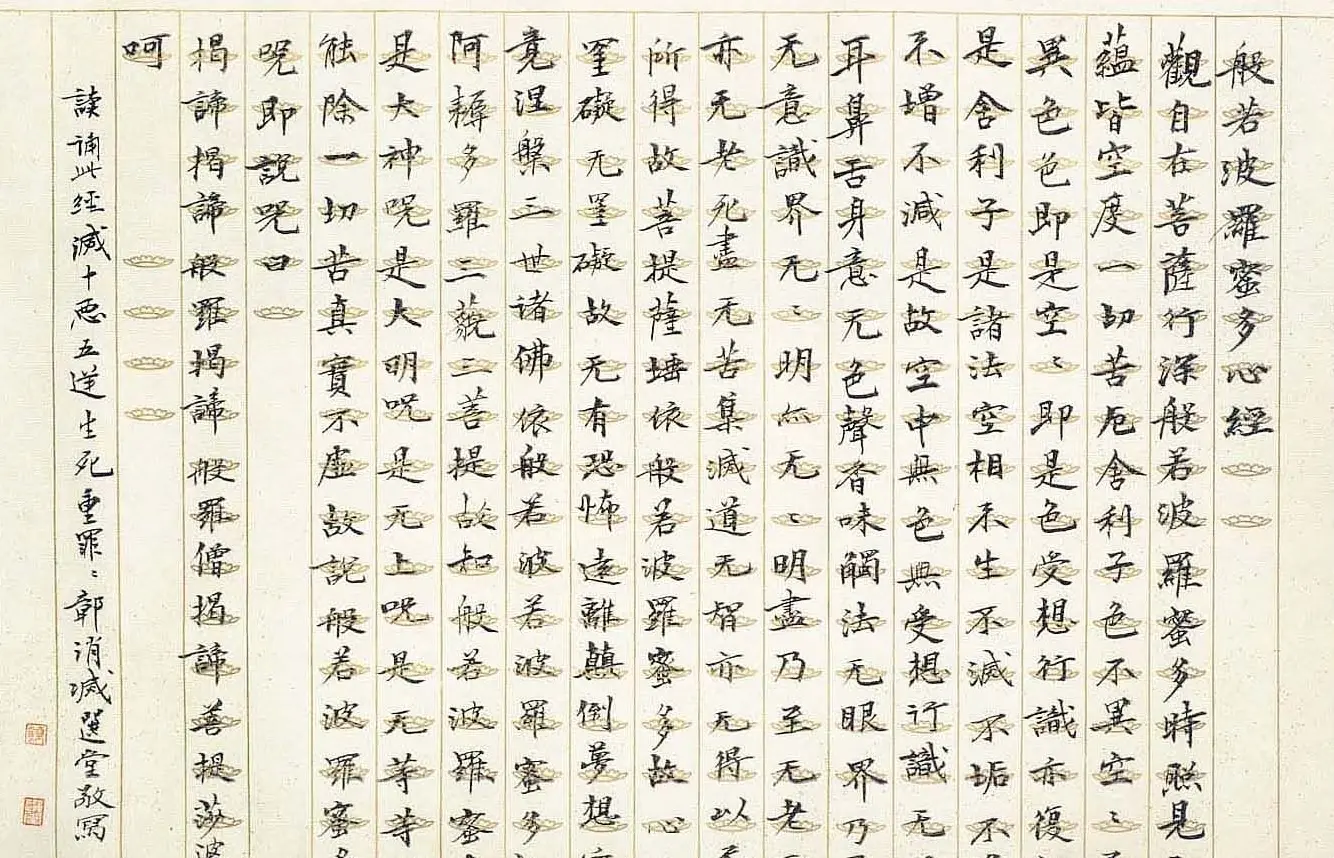 般若波羅蜜多心經
觀自在菩薩行深般若波羅蜜多時照見
蘊皆空度一切苦厄舍利子色不異空〻
異色色即是空〻即是色受想行識亦復
是舍利子是諸法空相不生不滅不垢不
不增不減是故空中無色無受想行識无
耳鼻舌身意无色聲香味觸法无眼界乃
无意識界无〻明亦无〻明盡乃至无老
亦无老死盡无苦集滅道无智亦无得以
所得故菩提薩埵依般若波羅蜜多故心
罣礙无罣礙故无有恐怖遠離顛倒夢想
竟涅槃三世諸佛依般若波若波羅蜜多
阿耨多羅三藐三菩提故知般若波羅蜜
是大神咒是大明咒是无上咒是无等等
能除一切苦真實不虛故說般若波羅蜜
咒即說咒曰
揭諦揭諦般羅揭諦般羅僧揭諦菩提莎婆
呵
讀誦此經滅十惡五逆生死重罪〻鄣消滅選堂敬寫